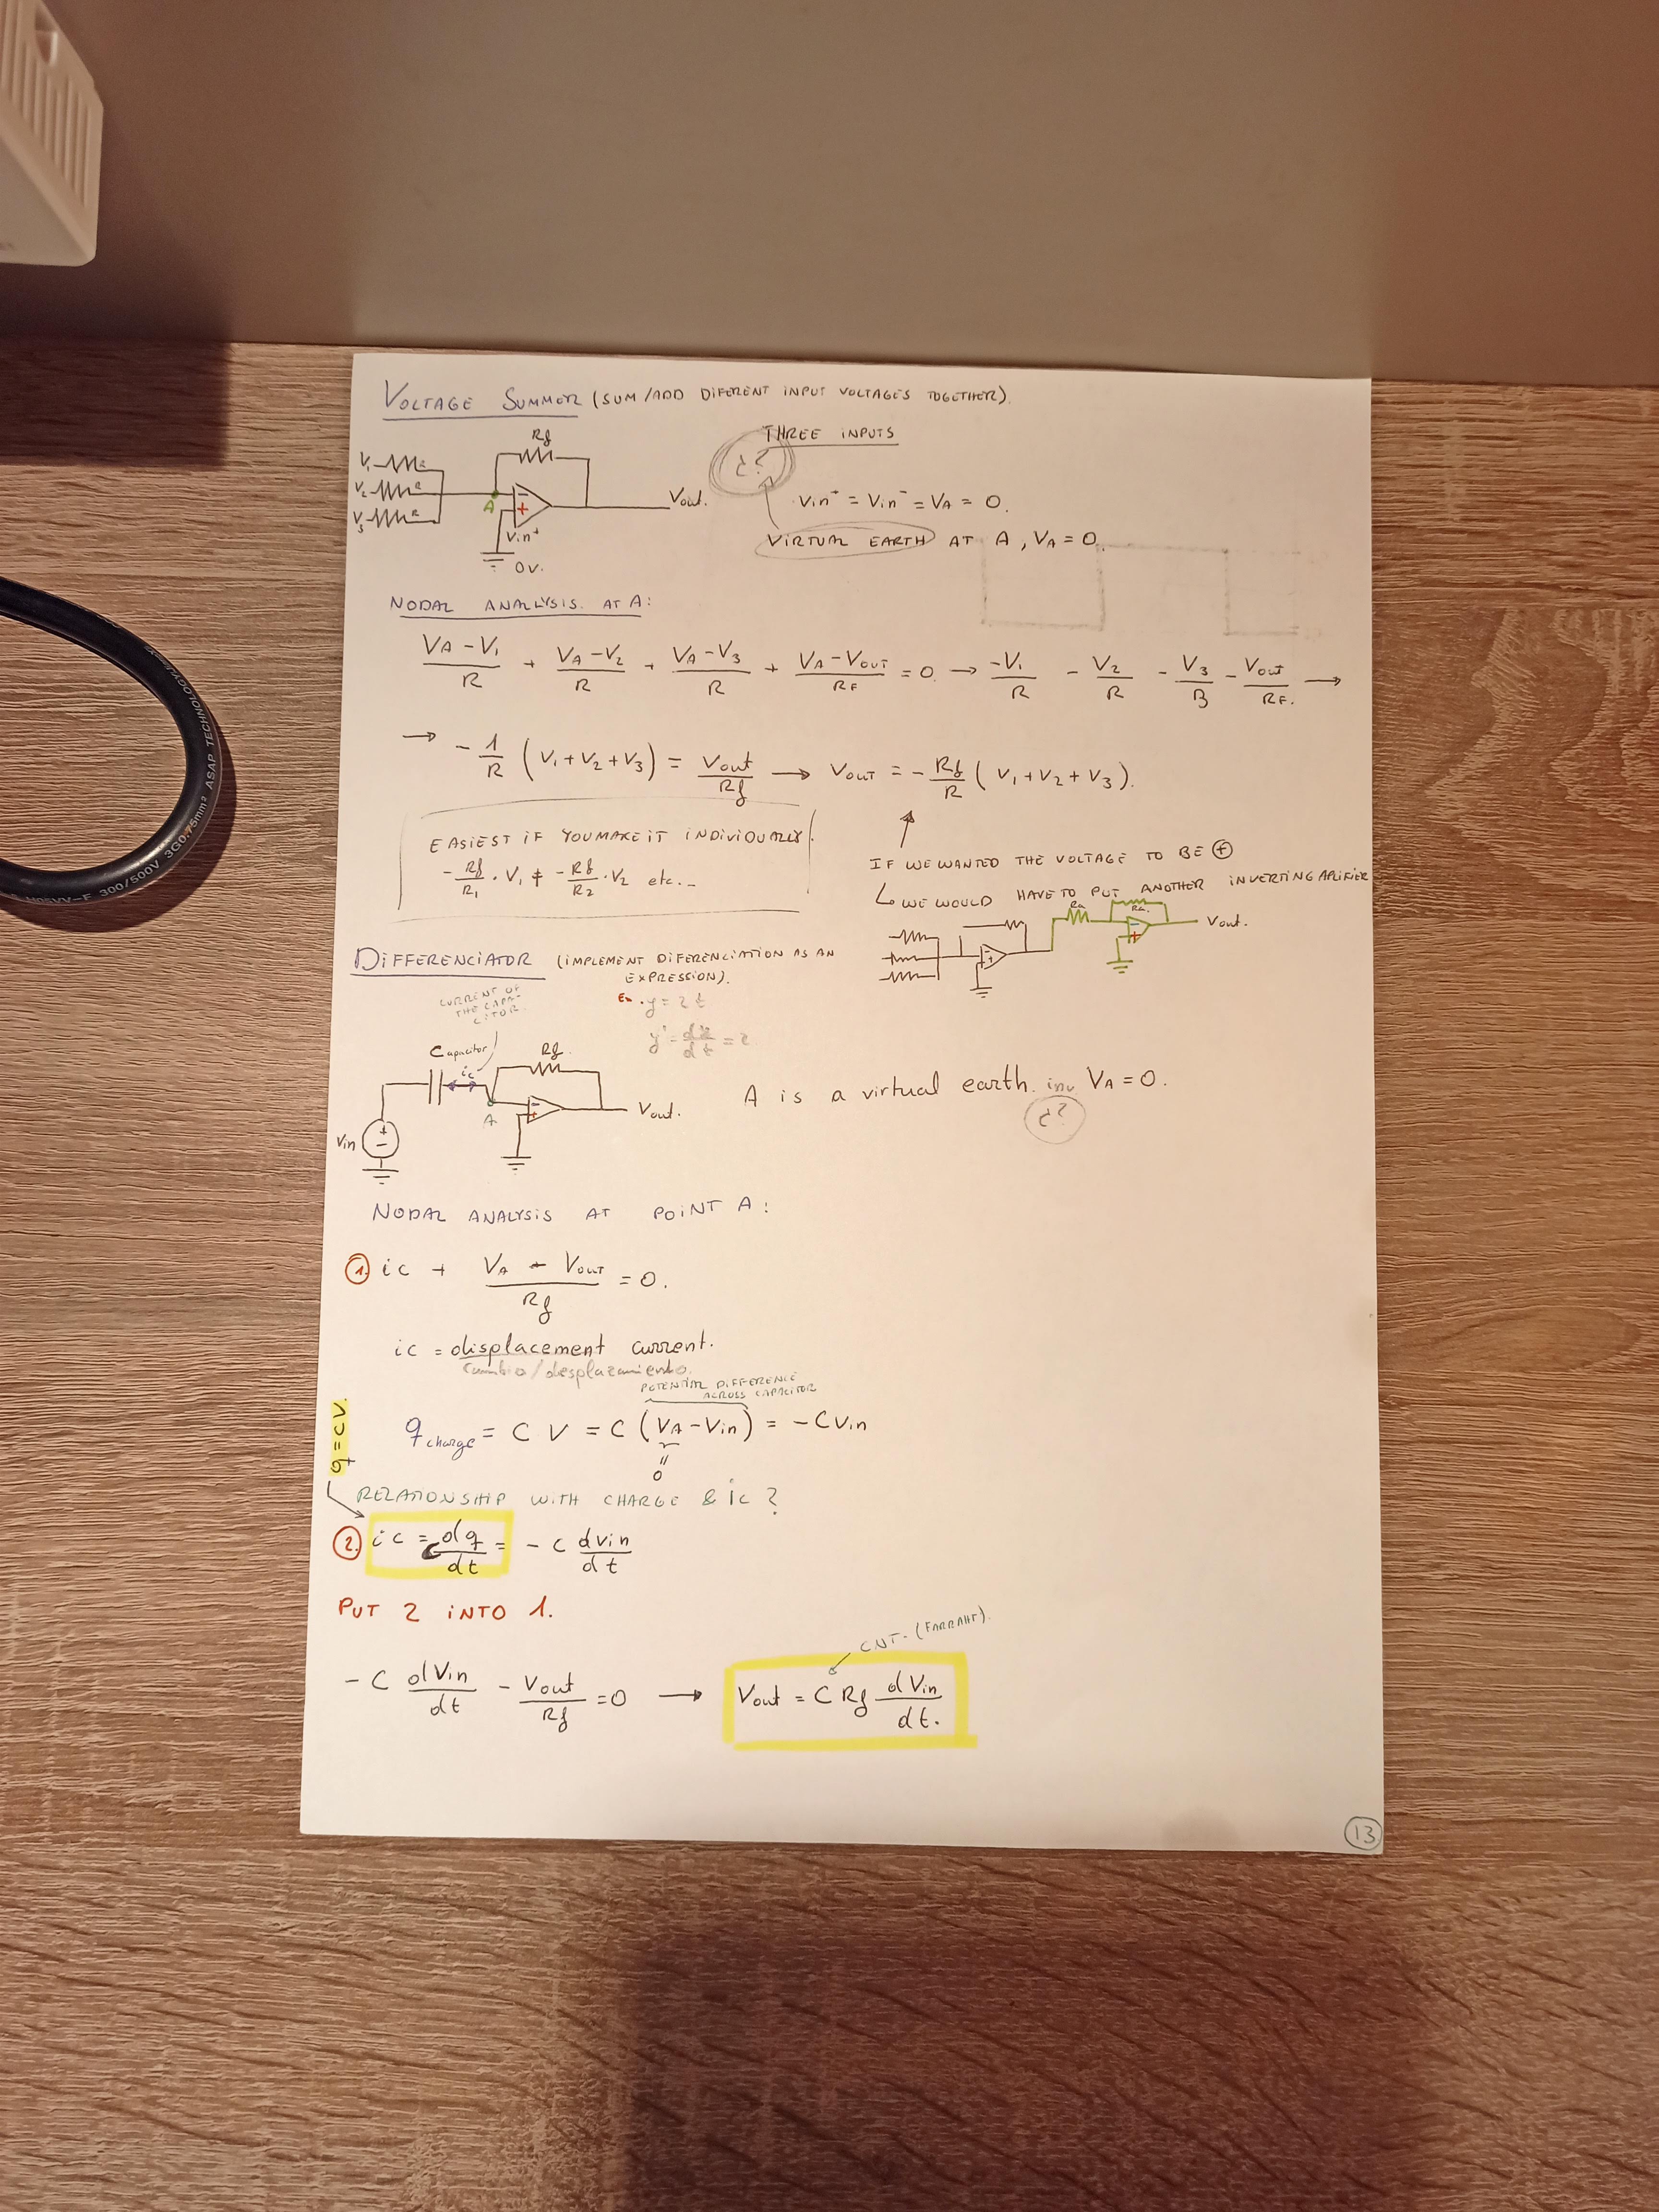 VOLTAGE SUMMER (SUM/ADD DIFERENT INPUT VOLTAGES TOGETHER).
THREE INPUTS
¿?
Rf
V1 R
V2 R
V3 R
A
- +
Vin+
0v.
Vout.
Vin+ = Vin- = VA = 0.
VIRTUAL EARTH AT A, VA = 0.
NODAL ANALYSIS. AT A:
(VA - V1)/R + (VA - V2)/R + (VA - V3)/R + (VA - VOUT)/RF = 0. → -V1/R - V2/R - V3/B - VOUT/RF. →
→ -1/R (V1 + V2 + V3) = Vout/Rf → VOUT = -Rf/R (V1 + V2 + V3).
EASIEST IF YOU MAKE IT INDIVIDUALLY
-Rf/R1 · V1 ≠ -Rf/R2 · V2 etc..
IF WE WANTED THE VOLTAGE TO BE +
↳ WE WOULD HAVE TO PUT ANOTHER INVERTING APLIFIER
Ra Ra.
- +
- +
Vout.
DIFFERENCIATOR (IMPLEMENT DIFERENCIATION AS AN
EXPRESSION).
Ex. y = 2t
y' = = 2
CURRENT OF
THE CAPA-
CITOR.
Capacitor
ic
Rf.
A
- +
Vout.
Vin + -
A is a virtual earth. inv VA = 0.
¿?
NODAL ANALYSIS AT POINT A:
1. ic + (VA - VOUT)/Rf = 0.
ic = displacement current.
cambio/desplazamiento.
POTENTIAL DIFFERENCE
ACROSS CAPACITOR
q charge = C V = C (VA - Vin) = - C Vin
=
0
q = CV.
RELATIONSHIP WITH CHARGE & ic?
2. ic = dq/dt = - C dvin/dt
PUT 2 INTO 1.
CNT- (FARRAHT).
- C dVin/dt - Vout/Rf = 0 → Vout = C Rf dVin/dt.
13
H05VV-F 300/500V 3G0.75mm² ASAP TECHNOLOGY